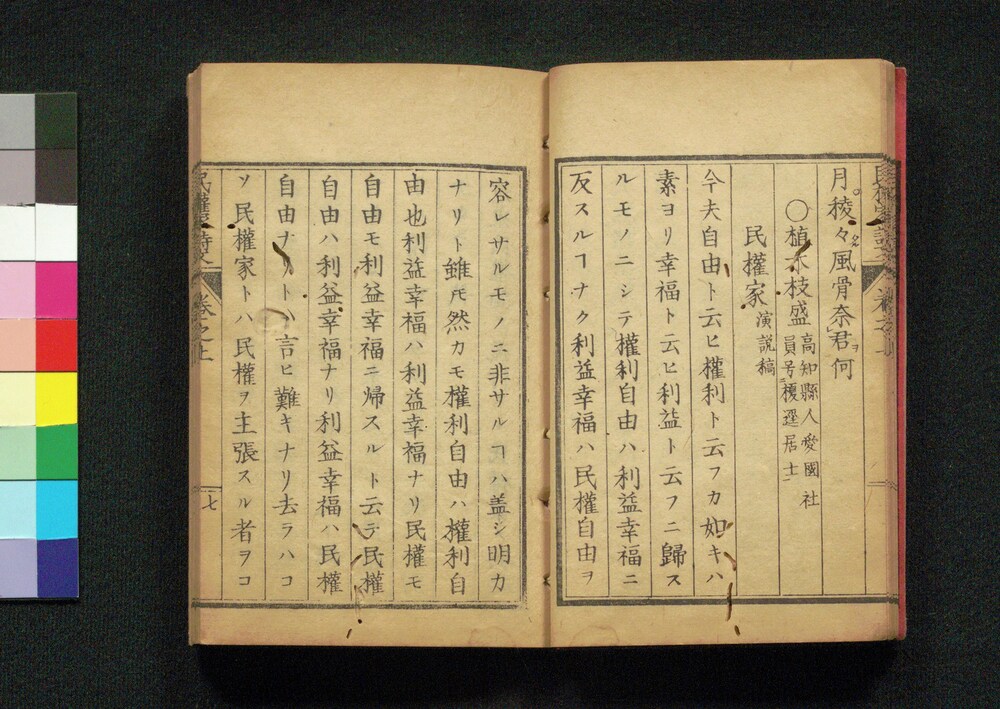 月稜々風骨奈君ヲ何
〇植木枝盛
高知縣人愛國社
員号榎逕居士
民權家
演説稿
今夫自由ト云ヒ權利ト云フカ如キハ
素ヨリ幸福ト云ヒ利益ト云フニ歸ス
ルモノニシテ權利自由ハ利益幸福ニ
反スルヿナク利益幸福ハ民權自由ヲ
容レサルモノニ非サルヿハ盖シ明カ
ナリト雖𪜈然カモ權利自由ハ權利自
由也利益幸福ハ利益幸福ナリ民權モ
自由モ利益幸福ニ帰スルト云テ民權
自由ハ利益幸福ナリ利益幸福ハ民權
自由ナリトハ言ヒ難キナリ去ラハコ
ソ民權家トハ民權ヲ主張スル者ヲコ
卷之上
七